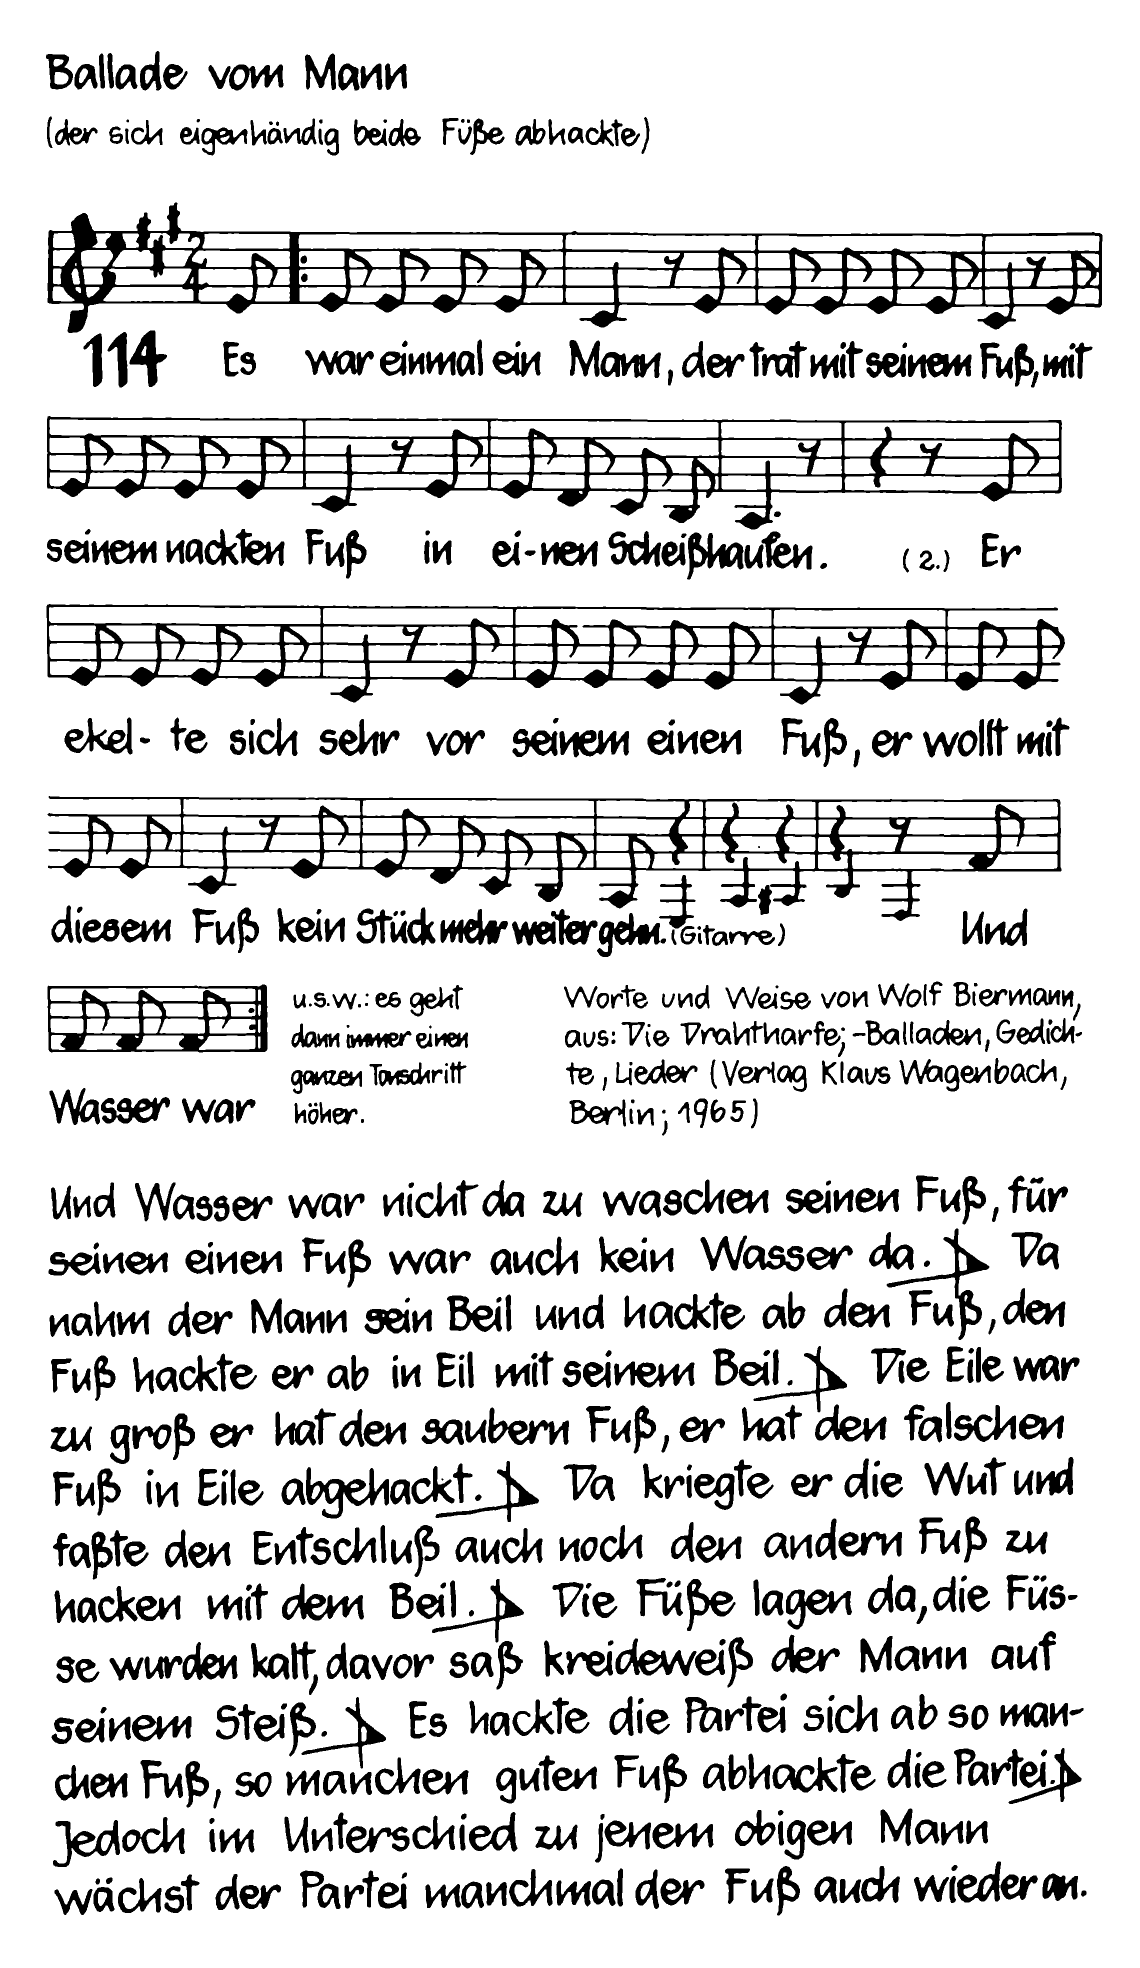 Ballade vom Mann
(der sich eigenhändig beide Füße abhackte)
2
4
114 Es war einmal ein Mann, der trat mit seinem Fuß, mit
seinem nackten Fuß in ei-nen Scheißhaufen. (2.) Er
ekel- te sich sehr vor seinem einen Fuß, er wollt mit
diesem Fuß kein Stück mehr weiter gehn. (Gitarre) Und
Wasser war
u.s.w.: es geht
dann immer einen
ganzen Tonschritt
höher.
Worte und Weise von Wolf Biermann,
aus: Die Drahtharfe; -Balladen, Gedich-
te, Lieder (Verlag Klaus Wagenbach,
Berlin; 1965)
Und Wasser war nicht da zu waschen seinen Fuß, für
seinen einen Fuß war auch kein Wasser da. Da
nahm der Mann sein Beil und hackte ab den Fuß, den
Fuß hackte er ab in Eil mit seinem Beil. Die Eile war
zu groß er hat den saubern Fuß, er hat den falschen
Fuß in Eile abgehackt. Da kriegte er die Wut und
faßte den Entschluß auch noch den andern Fuß zu
hacken mit dem Beil. Die Füße lagen da, die Füs-
se wurden kalt, davor saß kreideweiß der Mann auf
seinem Steiß. Es hackte die Partei sich ab so man-
chen Fuß, so manchen guten Fuß abhackte die Partei.
Jedoch im Unterschied zu jenem obigen Mann
wächst der Partei manchmal der Fuß auch wieder an.